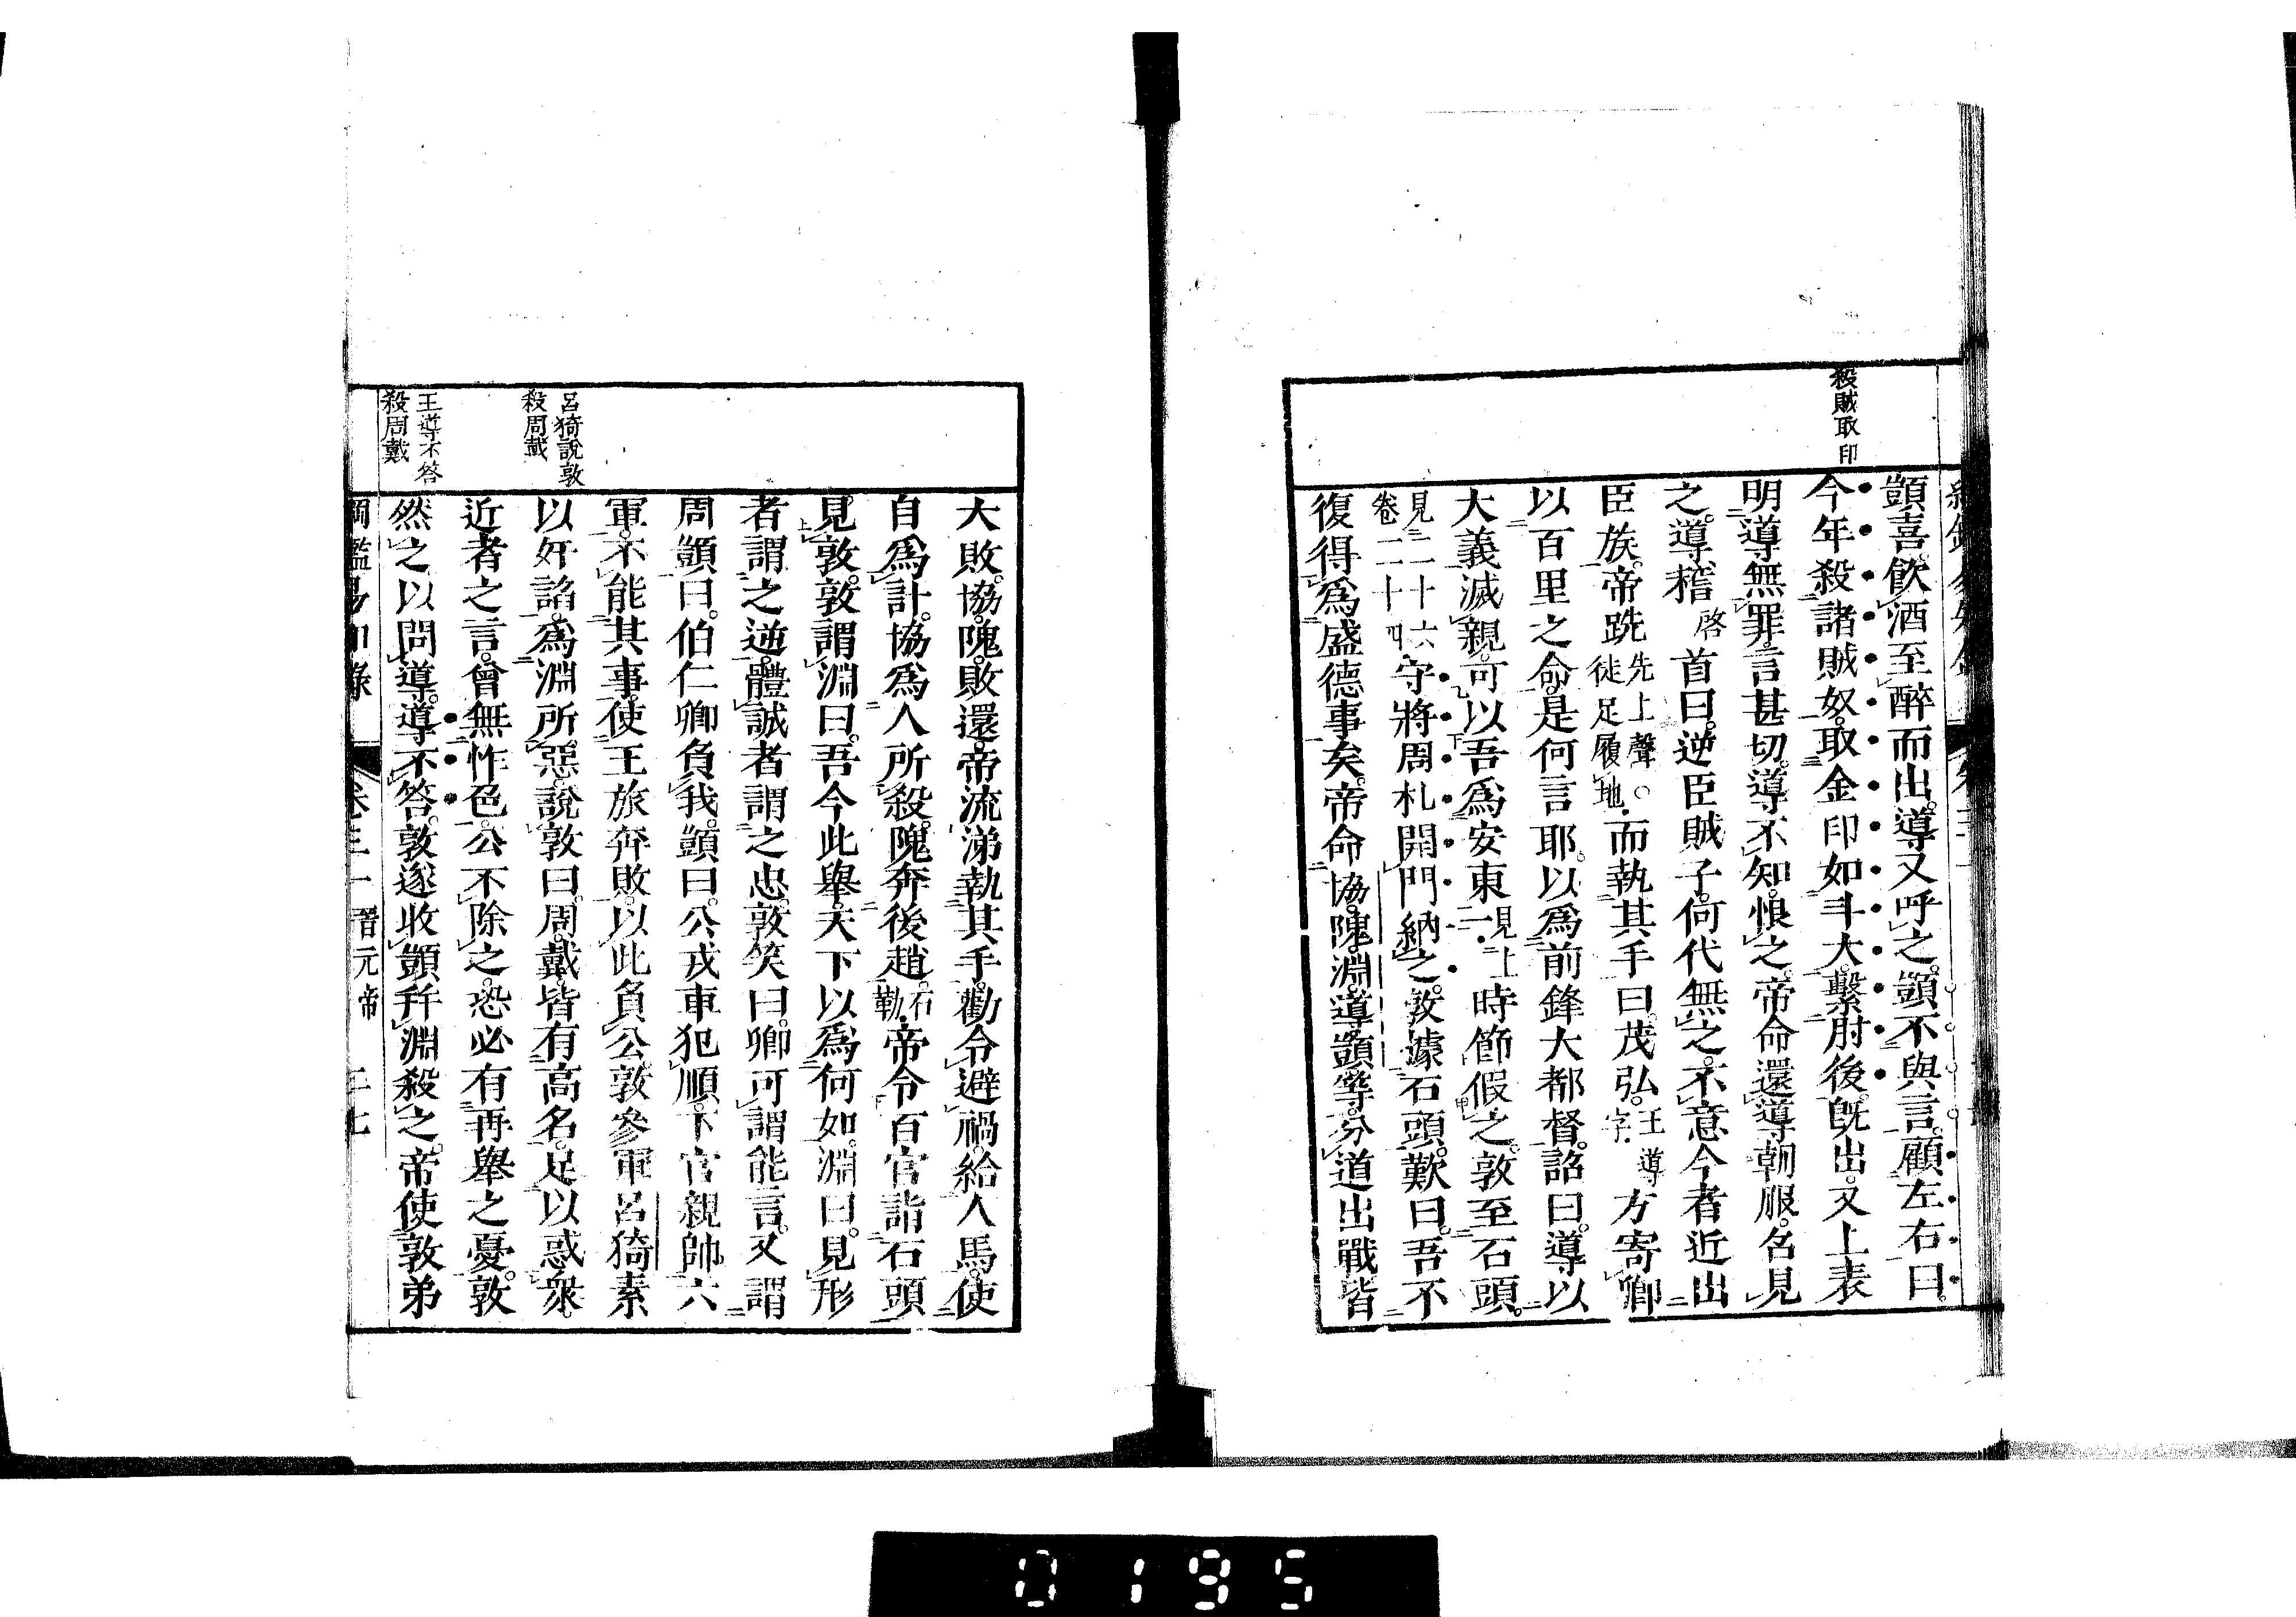 殺賊取印
顗喜。飮酒至醉而出。導又呼之。顗不與言。顧左右曰。
今年殺諸賊奴。取金印如斗大。繫肘後。旣出。又上表
明導無罪。言甚切。導不知。恨之。帝命還導朝服。名見
之。導稽啓首曰。逆臣賊子。何代無之。不意今者近出
臣族。帝跣先上聲○徒足履地而執其手曰。茂弘。王導字方寄卿
以百里之命。是何言耶。以爲前鋒大都督。詔曰。導以
大義滅親。可以吾爲安東見上二時節假之。敦至石頭。
見二十六卷二十四守將周札開門納之。敦據石頭。歎曰。吾不
復得爲盛德事矣。帝命協。隗。淵。導。顗等。分道出戰。皆
大敗。協。隗。敗還。帝流涕執其手。勸令避禍。給人馬。使
自爲計。協爲人所殺。隗奔後趙。石勒帝令百官詣石頭
見敦。敦謂淵曰。吾今此舉。天下以爲何如。淵曰。見形
者謂之逆。體誠者謂之忠。敦笑曰。卿可謂能言。又謂
周顗曰。伯仁卿負我。顗曰。公戎車犯順。下官親帥六
軍。不能其事。使王旅奔敗。以此負公。敦參軍呂猗素
以奸諂。爲淵所惡。說敦曰。周。戴。皆有高名。足以惑衆。
近者之言。曾無怍色。公不除之。恐必有再舉之憂。敦
然之以問導。導不答。敦遂收顗幷淵殺之。帝使敦弟
呂猗說敦
殺周戴
王導不答
殺周戴
綱鑑易知錄 卷三一 晉元帝 二七
0195